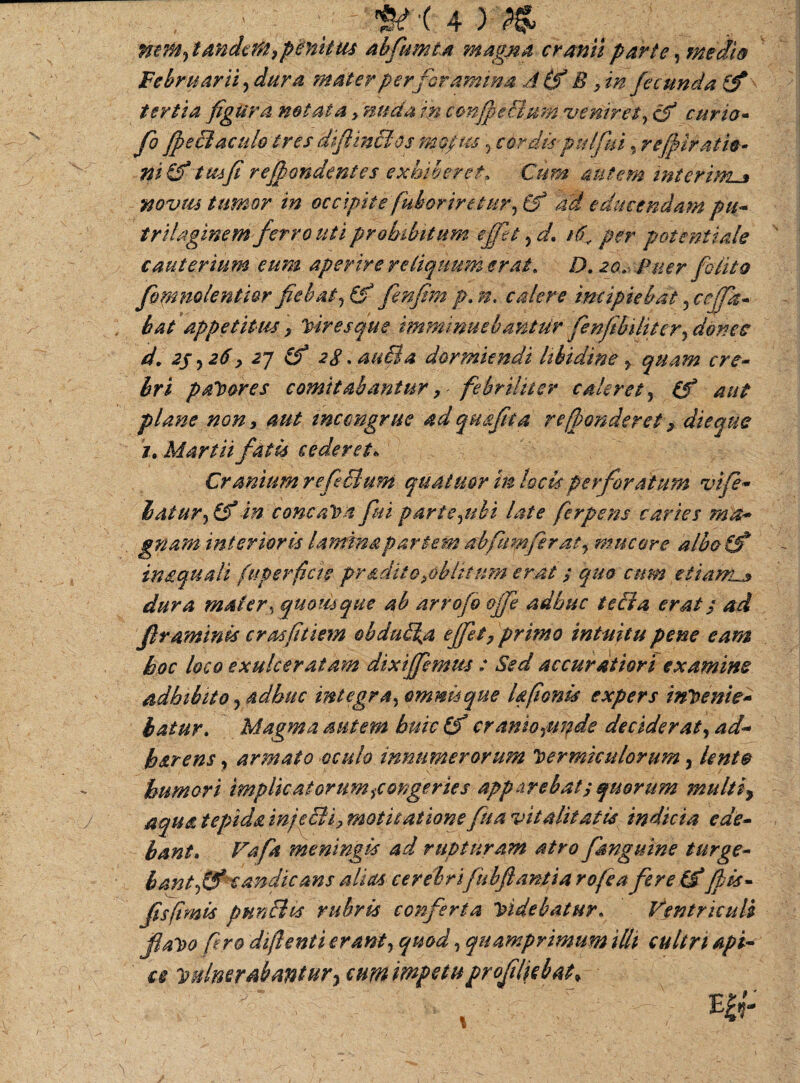 ( 4 )
nem, tandem, penitus absumta magna cranii parte, medio
Februarii, dura mater per foramina A & B, in secunda &
tertia figura notata, nuda in conspectum veniret, & curio-
so spectaculo tres distinctos motus, cordis pulsui, respiratio-
ni & tussi respondentes exhiberet. Cum autem interim
novus tumor in occipite suboriretur, & ad educendam pu-
trilaginem ferro uti prohibitum esset, d. 16. per potentiale
cauterium eum aperire reliquum erat. D. 20. Puer solito
somnolentior fiebat, & sensim p. n. calere incipiebat, cessa-
bat appetitus, viresque imminuebantur sensibiliter, donec
d. 25, 26, 27 & 28. aucta dormiendi libidine, quam cre-
bri pavores comitabantur, febriliter caleret, & aut
plane non, aut incongrue ad quæsita responderet, dieque
1. Martii fatis cederet.
Cranium refectum quatuor in locis perforatum vise-
batur, & in concava sui parte, ubi late serpens caries ma-
gnam interioris laminæ partem absumserat, mucore albo &
inæquali superficie prædito, oblitum erat; quo cum etiam
dura mater, quousque ab arroso osse adhuc tecta erat; ad
straminis crassitiem obducta esset, primo intuitu pene eam
hoc loco exulceratam dixissemus: Sed accuratiori examine
adhibito, adhuc integra, omnisque læsionis expers invenie-
batur. Magma autem huic & cranio, unde deciderat, ad-
hærens, armato oculo innumerorum vermiculorum, lento
humori implicatorum, congeries apparebat; quorum multi,
aqua tepida injecti, motitatione sua vitalitatis indicia ede-
bant. Vasa meningis ad rupturam atro sanguine turge-
bant, & candicans alias cerebri substantia rosea fere & spis-
sissimis punctis rubris conferta videbatur. Ventriculi
flavo sero distenti erant, quod, quamprimum illi cultri api-
ce vulnerabantur, cum impetu prosiliebat.